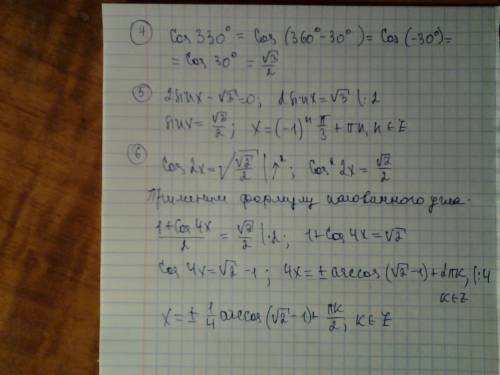 ④ Cos 330° = Cos (360° - 30°) = Cos (-30°) =
= Cos 30° = √3/2
⑤ 2sinx - √3 = 0, 2sinx = √3 |:2
sinx = √3/2; x = (-1)ⁿ π/3 + πn, n ∈ Z
⑥ Cos 2x = √(√2/2) |↑²; Cos² 2x = √2/2
Применим формулу половинного угла.
(1+Cos 4x)/2 = √2/2 |·2; 1+Cos 4x = √2
Cos 4x = √2 - 1; 4x = ± arccos (√2 - 1) + 2πk, |:4
k ∈ Z
x = ± 1/4 arccos (√2 - 1) + πk/2, k ∈ Z